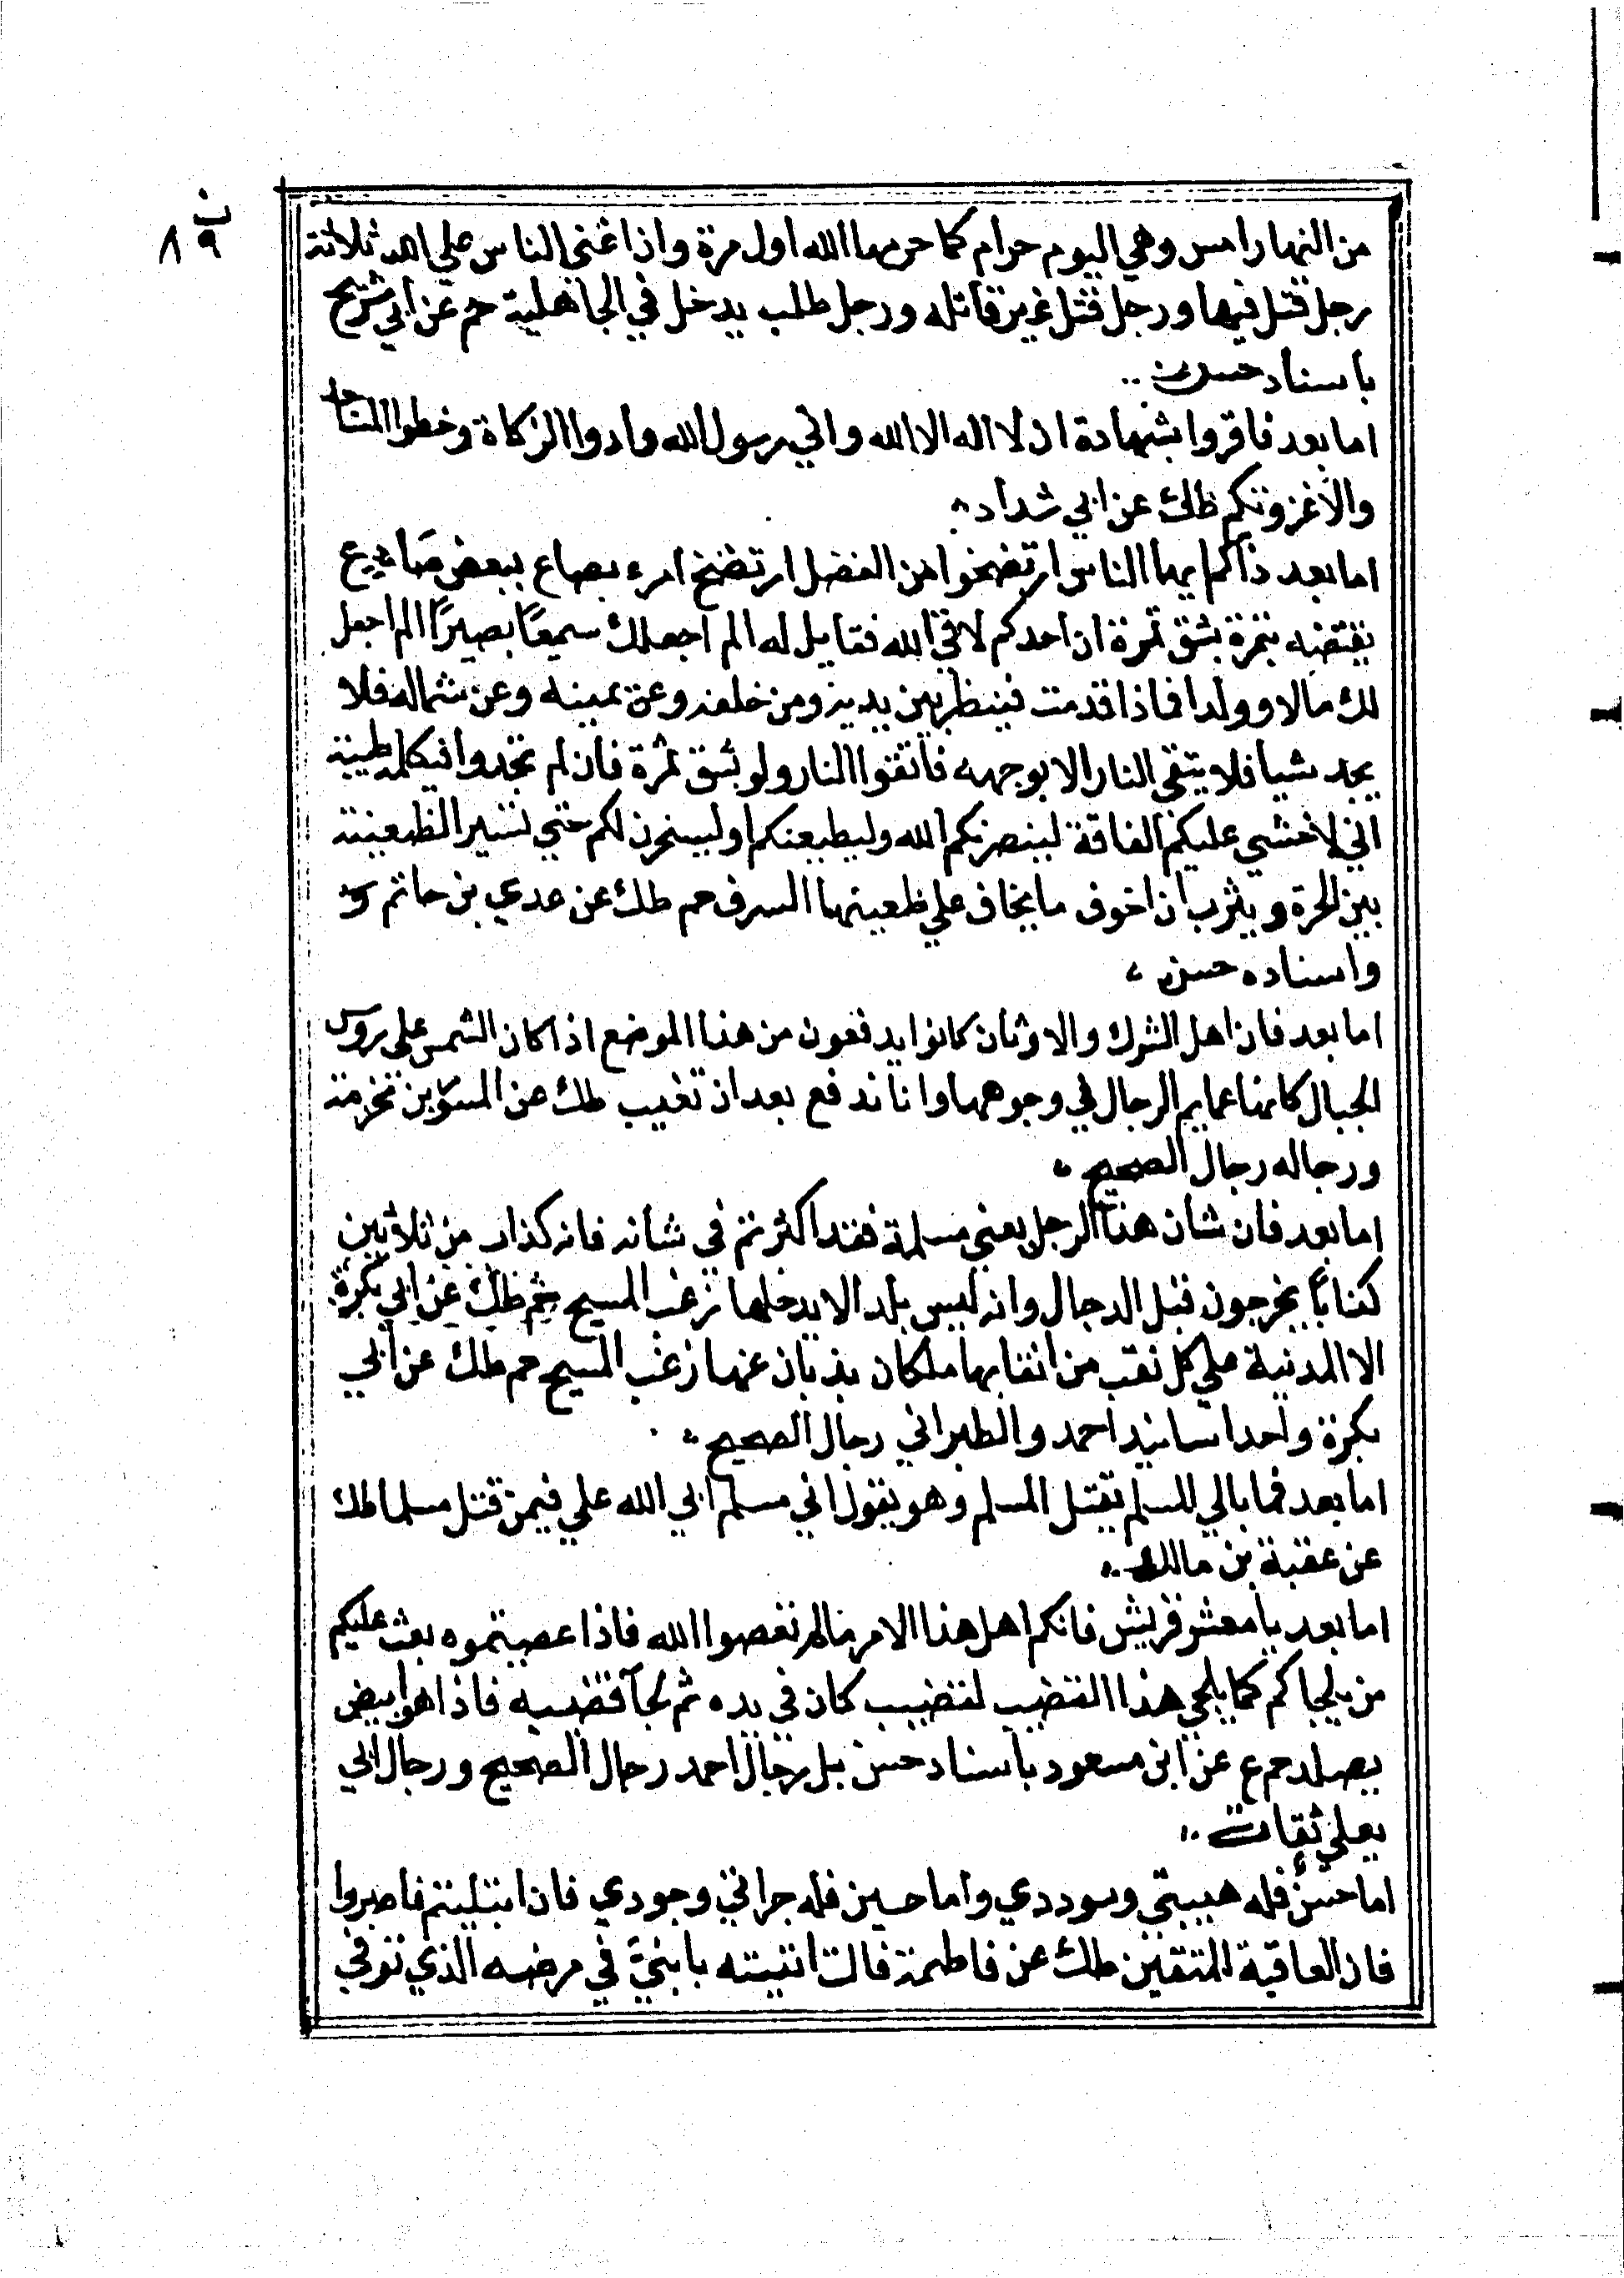 ب ٩ ٨
من النهار امس وهي اليوم حرام كما حرمها الله اول مرة واذا غني الناس علي الله ثلاثة
رجل قتل فيها ورجل قتل غير قاتله ورجل طلب بدخل في الجاهلية حم عن ابي شريح
باسناد حسن
اما بعد فاقروا بشهادة ان لا اله الا الله واني رسول الله وادوا الزكاة وخطوا المساجد
والا غزوتكم طك عن ابي شداد
اما بعد ذاكم ايها الناس ارتضخوا من الفضل ارتضخ امرء بصاع ببعض صاع
بقبضه بتمرة بشق تمرة ان احدكم لاقي الله فقايل له الم اجعلك سميعًا بصيرًا الم اجعل
لك مالا وولدا فماذا قدمت فينظر بين يديه ومن خلفه وعن يمينه وعن شماله فلا
يجد شيا فلا يتقي النار الا بوجهه فاتقوا النار ولو بشق تمرة فان لم تجدوا فبكلمة طيبة
اني لا اخشي عليكم الفاقة لينصرنكم الله وليطيعنكم او ليسخرن لكم حتي تسير الظعينة
بين الحرة ويثرب ان اخوف ما يخاف علي ظعينتها السرق حم طك عن عدي بن حاتم
واسناده حسن
اما بعد فان اهل الشرك والاوثان كانوا يدفعون من هذا الموضع اذا كان الشمس علي روس
الجبال كانها عمايم الرجال في وجوهها وانا ندفع بعد ان تغيب طك عن المسور بن مخرمة
ورجاله رجال الصحيح
اما بعد فان شان هذا الرجل يعني مسلمة فقد اكثرتم في شانه فانه كذاب من ثلاثين
كذابًا يخرجون قبل الدجال وانه ليس بلد الا يدخلها رعب المسيح حم طك عن ابي بكرة
الا المدينة علي كل نقب من انقابها ملكان يذبان عنها رعب المسيح حم طك عن ابي
بكرة واحد اسانيد احمد والطبراني رجال الصحيح
اما بعد فما بالي للمسلم يقتل المسلم وهو يقول اني مسلم ابي الله علي فيمن قتل مسلما طك
عن عقبة بن مالك
اما بعد يا معشر قريش فانكم اهل هذا الامر مالم تعصوا الله فاذا عصيتموه بعث عليكم
من يلحاكم كما يلحي هذا القضيب لقضيب كان في يده ثم لحا قضيبه فاذا هو ابيض
يصلد حم ع عن ابن مسعود باسناد حسن بل رجال احمد رجال الصحيح ورجال ابي
يعلي ثقات
اما حسن فله هيبتي وسوددي واما حسين فله جراتي وجودي فان ابتليتم فاصبروا
فان العاقبة للمتقين طك عن فاطمة قالت اتيته بابنيَّ في مرضه الذي توفي